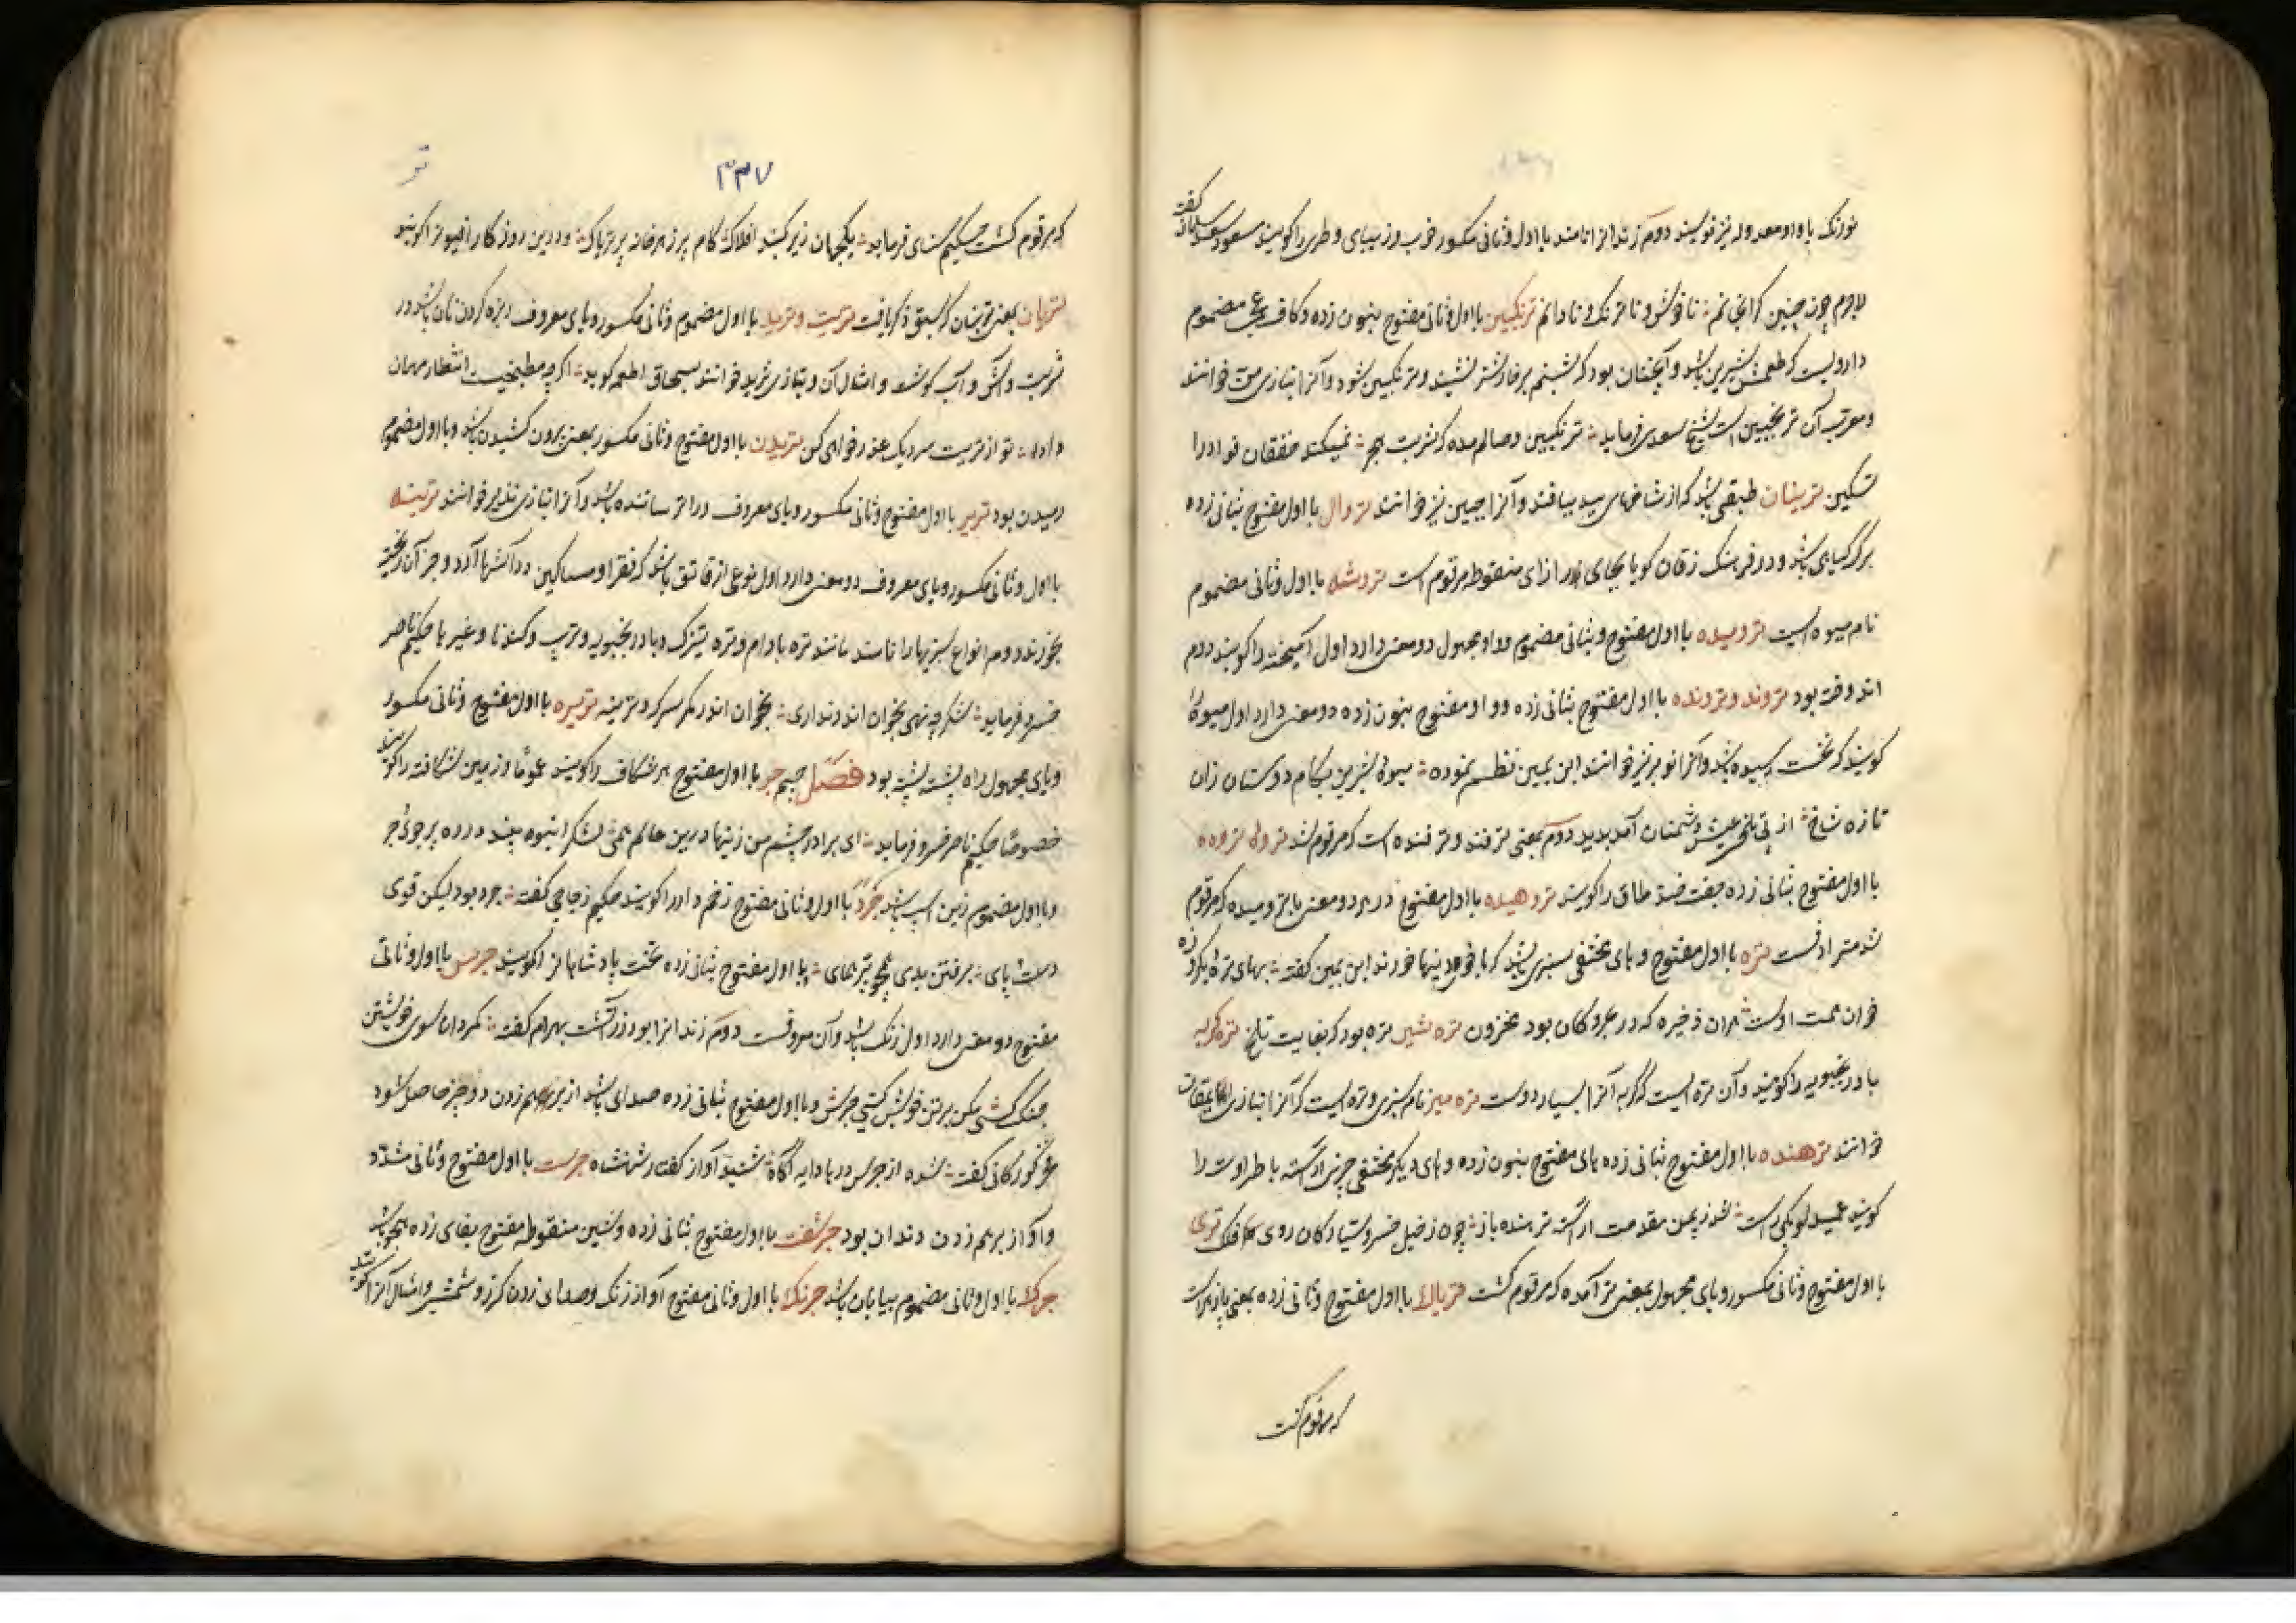 نورنک با واو معدوله نیز نویسند دوم زندانرا نامند با اول و ثانی مکسور خوب و زیبای و طری را کویند مسعود سعد سلمان کفته
لاجرم چون چنین کرانی نم تا خوش و تا ترنک و تا دانم ترنکبین با اول و ثانی مفتوح بنون زده و کاف عجمی مضموم
دارویست که طعمش شیرین باشد و آنچنان بود که شبنم بر خار شتر نشیند و ترنکبین شود و آنرا بتازی من خوانند
و معرب آن ترنجبین است شیخ سعدی فرماید ترنکبین وصالم بده که شربت هجر نمیکند خفقان فوادرا
تسکین ترینان طبقی باشد که از شاخهای بید ببافند و آنرا چبین نیز خوانند تروال با اول مفتوح بثانی زده
برک کیاهی باشد و در فرهنک زفان کویا بجای را زای منقوطه مرقوم است تروشه با اول و ثانی مضموم
نام میوه ایست ترومیده با اول مفتوح و بثانی مضموم و واو مجهول دو معنی دارد اول آمیخته را کویند دوم
اندوخته بود تروند و ترونده با اول مفتوح بثانی زده و واو مفتوح بنون زده دو معنی دارد اول میوه
کویند که نخست رسیده باشد و آنرا نوبر نیز خوانند ابن یمین نظم نموده میوه شیرین بکام دوستان زان
تازه شاخ از پی تلخی عیش دشمنان آمد پدید دوم بمعنی ترفند و ترفنده است که مرقوم شد تروه تروده
با اول مفتوح بثانی زده جفت ضد طاق را کویند تروهیده با اول مفتوح در هر دو معنی با ترومیده که مرقوم
شد مترادفست تره با اول مفتوح و های مختفی سبزی باشد که با خوردنیها خورند ابن یمین کفته بهای تره
خوان همت اوست هران ذخیره که در بحر و کان بود مخزون تره تلخ تره بود که بغایت تلخ تره کربه
بادرنجبویه را کویند و آن تره ایست که کربه آنرا بسیار دوست تره میره نام سبزی و تره ایست که آنرا بتازی
خوانند ترهنده با اول مفتوح بثانی زده های مفتوح بنون زده و های دیکر مختفی چیز آراسته با طراوت را
کویند عمید لوبکی راست شد ز یمن مقدمت آراسته ترهنده باز چون ز خیل خسرو سیارکان روی فلک تری
با اول مفتوح و ثانی مکسور و یای مجهول بمعنی تر آمده که مرقوم کشت تریاک با اول مفتوح و ثانی زده بمعنی پازهر است
که مرقوم کشت
۳۳۷
تر
که مرقوم کشت حکیم سنای فرماید یکجهان زیر کنبد افلاک کام پر زهر خانه پر تریاک و در این روزکار افیون را کویند
تریان بمعنی ترینان که سبق ذکر یافت تریت و ترید با اول مضموم و ثانی مکسور و یای معروف ریزه کردن نان باشد در
شربت و آش و آب کوشت و امثال آن و بتازی ثرید خوانند بسحاق اطعمه کوید اکرچه مطبخیت انتظار مهمان
داد تو از تریت سر دیک عذر خواهی کن تریدن با اول مفتوح و ثانی مکسور بمعنی برون کشیدن باشد و با اول مضموم
رمیدن بود تریر با اول مفتوح و ثانی مکسور و یای معروف ترساننده باشد و آنرا بتازی نذیر خوانند ترینه
با اول و ثانی مکسور و یای معروف دو معنی دارد اول نوعی از قاتق باشد که فقرا و مساکین در آشها آرد و جز آن ریخته
بخورند دوم انواع سبزیها را نامند مانند تره بادام و تره تیزک و بادرنجبویه و ترب و کندنا و غیر ها حکیم ناصر
خسرو فرماید شکر چه نهی بخوان اندر نداری بخوان اندر مکر سرکه و ترینه تریوه با اول مفتوح و ثانی مکسور
و یای مجهول راه پشته پشته بود فصل جیم جر با اول مفتوح هر شکاف را کویند عموما و زمین شکافته را کویند
خصوصا حکیم ناصر خسرو فرماید ای برادر چشم من زینها درین عالم همی لشکر انبوه بیند در ره پر جوی و جر
و با اول مضموم زین اسب باشد جرد با اول و ثانی مفتوح زخم دار را کویند حکیم زجاجی کفته جرد بود لیکن قوی
دست و پای برفتن بدی همچو پر همای و با اول مفتوح بثانی زده تخت پادشاهانرا کویند جرس با اول و ثانی
مفتوح دو معنی دارد اول زنک باشد و آن معروفست دوم زندانرا بود زرتشت بهرام کفته نمردان سوی خویشتن
جنک کشی مکن بر تن خویش کیتی جرس و با اول مفتوح بثانی زده صدای باشد از برهم زدن دو چیز حاصل شود
عمرو کورکانی کفته شده از جرس در با دایه آکاه شنید آواز کفتار شهنشاه جرست با اول مفتوح و ثانی مشدد
و آواز برهم زدن دندان بود جرشفت با اول مفتوح بثانی زده و شین منقوطه مفتوح بفای زده هجو باشد
جرکه با اول و ثانی مضموم بیابان باشد جرنک با اول و ثانی مفتوح آواز زنک و صدای زدن کرز و شمشیر و امثال آنرا کویند